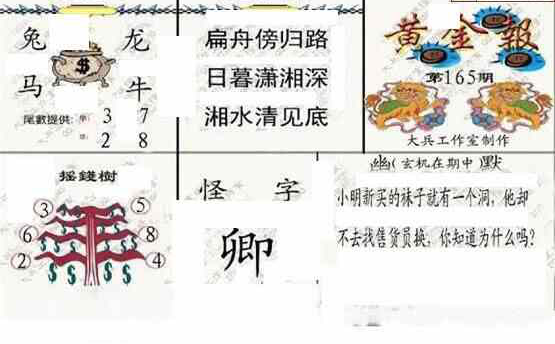 兔 龙
马 牛
尾數提供: 3 7
2 8
扁舟傍归路
日暮潇湘深
湘水清见底
黄金報
第165期
大兵工作室制作
摇錢樹
3 5
6 8
2 4
怪 字
卿
幽(玄机在期中 默
小明新买的袜子就有一个洞，他却
不去找售货员换，你知道为什么吗?